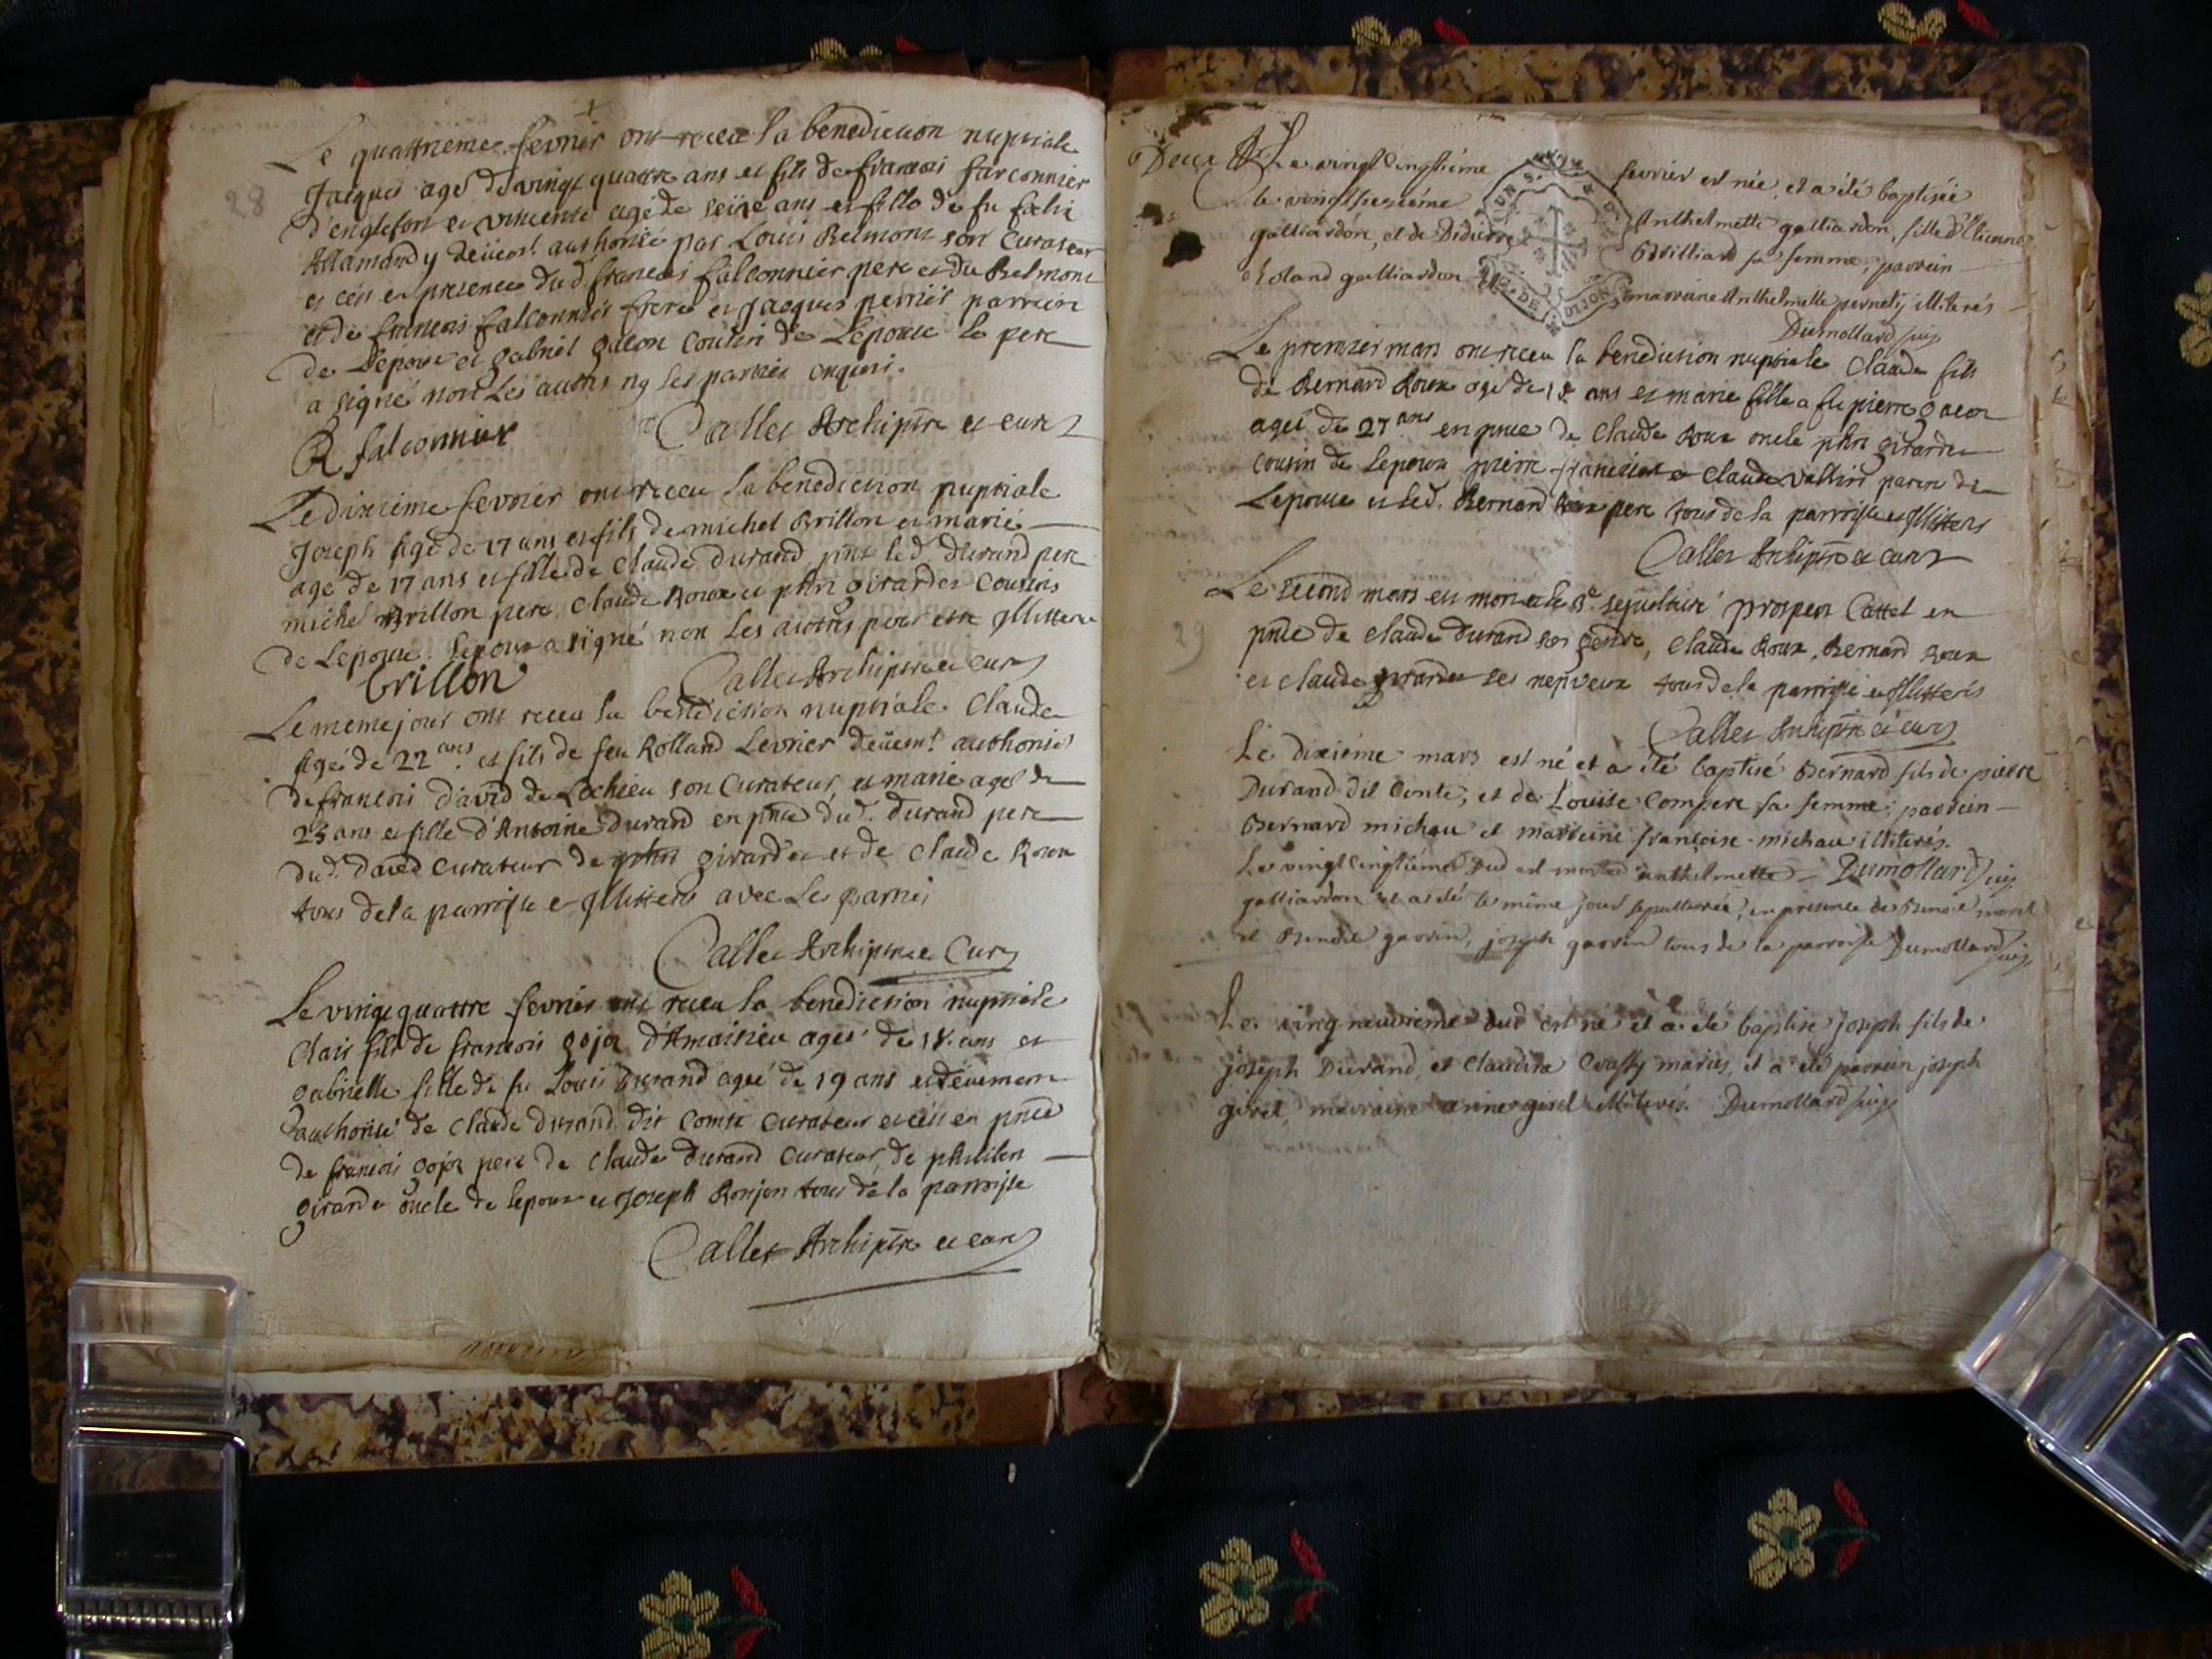 28
Le quattrieme fevrier ont receu la benediction nuptiale
Jacques agé de vingt quattre ans et fils de francois farconnier
d'englefort et vincente agé de seize ans et fille de fu
Allamand y deüem.t authorisé par Louis Belmont son Curateur
et ce en presence du d. francois falconnier pere et du Belmont
et de francois falconnier frere et Jacques perrier parrein
de L'epoux et gabriel gueon Cousin de L'epouse le pere
a signé non Les autres ny les parties enquis.
R falconnier Callet Archiptre et curé
Le dixieme fevrier ont receu la benediction nuptiale
Joseph agé de 17 ans et fils de michel Brillon et marie
agé de 17 ans et fille de Claude Durand pnt le d. durand pere
michel Brillon pere Claude Roux et phn girardet Cousins
de L'epouse. L'epoux a signé non Les autres pour estre Illitteres
brillon Callet Archiptre et curé
Le meme jour ont receu la benediction nuptiale. Claude
agé de 22 ans et fils de feu Rolland Levrier deüem.t authorisé
de francois david de Lochieu son Curateur et marie agé de
23 ans et fille d'Antoine Durand en pnce du d. durand pere
du d. david curateur de phn girardet et de Claude Roux
tous de la parroisse et Illitteres avec Les parties
Callet Archiptre et Curé
Le vingt quattre fevrier ont receu la benediction nuptiale
Clair fils de francois gojoz d'Amaisieu agé de 18 ans et
gabrielle fille de fu Louis Durand agé de 19 ans et deüement
authorisé de Claude durand dit Comte Curateur et ce en pnce
de francois gojoz pere de Claude durand Curateur, de philibn
girardet oncle de lepoux et Joseph Ronjon tous de la parroisse
Callet Archiptre et curé
Deux
Le vingt cinqtiéme fevrier est née, et a été baptisée
le vingt sixiéme Anthelmette galliardon, fille d'Etienne
galliardon, et de Didiere Brilliard sa femme, parrein
Roland galliardon marraine Anthelmette pernet, illiterés
Dumollard
DE DIJON
Le premier mars ont receu la benediction nuptiale Claude fils
de Bernard Roux agé de 18 ans et marie fille a fu pierre gueon
ageé de 27 ans en pnce de Claude Roux oncle phn girardet
Cousin de L'epoux pierre et Claude Vallin paren de
L'epouse et le d. Bernard Roux pere tous de la parroisse et Illitteres
Callet Archiptre et curé
29
Le second mars est mort et le 3.e sepulturé prosper Cattel en
pnce de claude durand son gendre, Claude Roux, Bernard Roux
et claude girardet ses nepveux tous de la parroisse et Illitterés
Callet Archiptre et curé
Le dixiéme mars est né et a été baptisé Bernard fils de pierre
Durand dit Conte, et de Louise Compere sa femme: parrein
Bernard michau et marreine françoise michau illiterés.
Le vingt cinqtiéme dud est morte anthelmette Dumollard
galliardon et a été le méme jour sepulturée, en presence de
et Bendit garrin, joseph garrin tous de la parroisse Dumollard
Le ving neuvieme dud est né et a été baptisé joseph fils de
joseph Durand, et Claudine mariés, et a été parrein joseph
girel, marraine anne girel illiterés. Dumollard